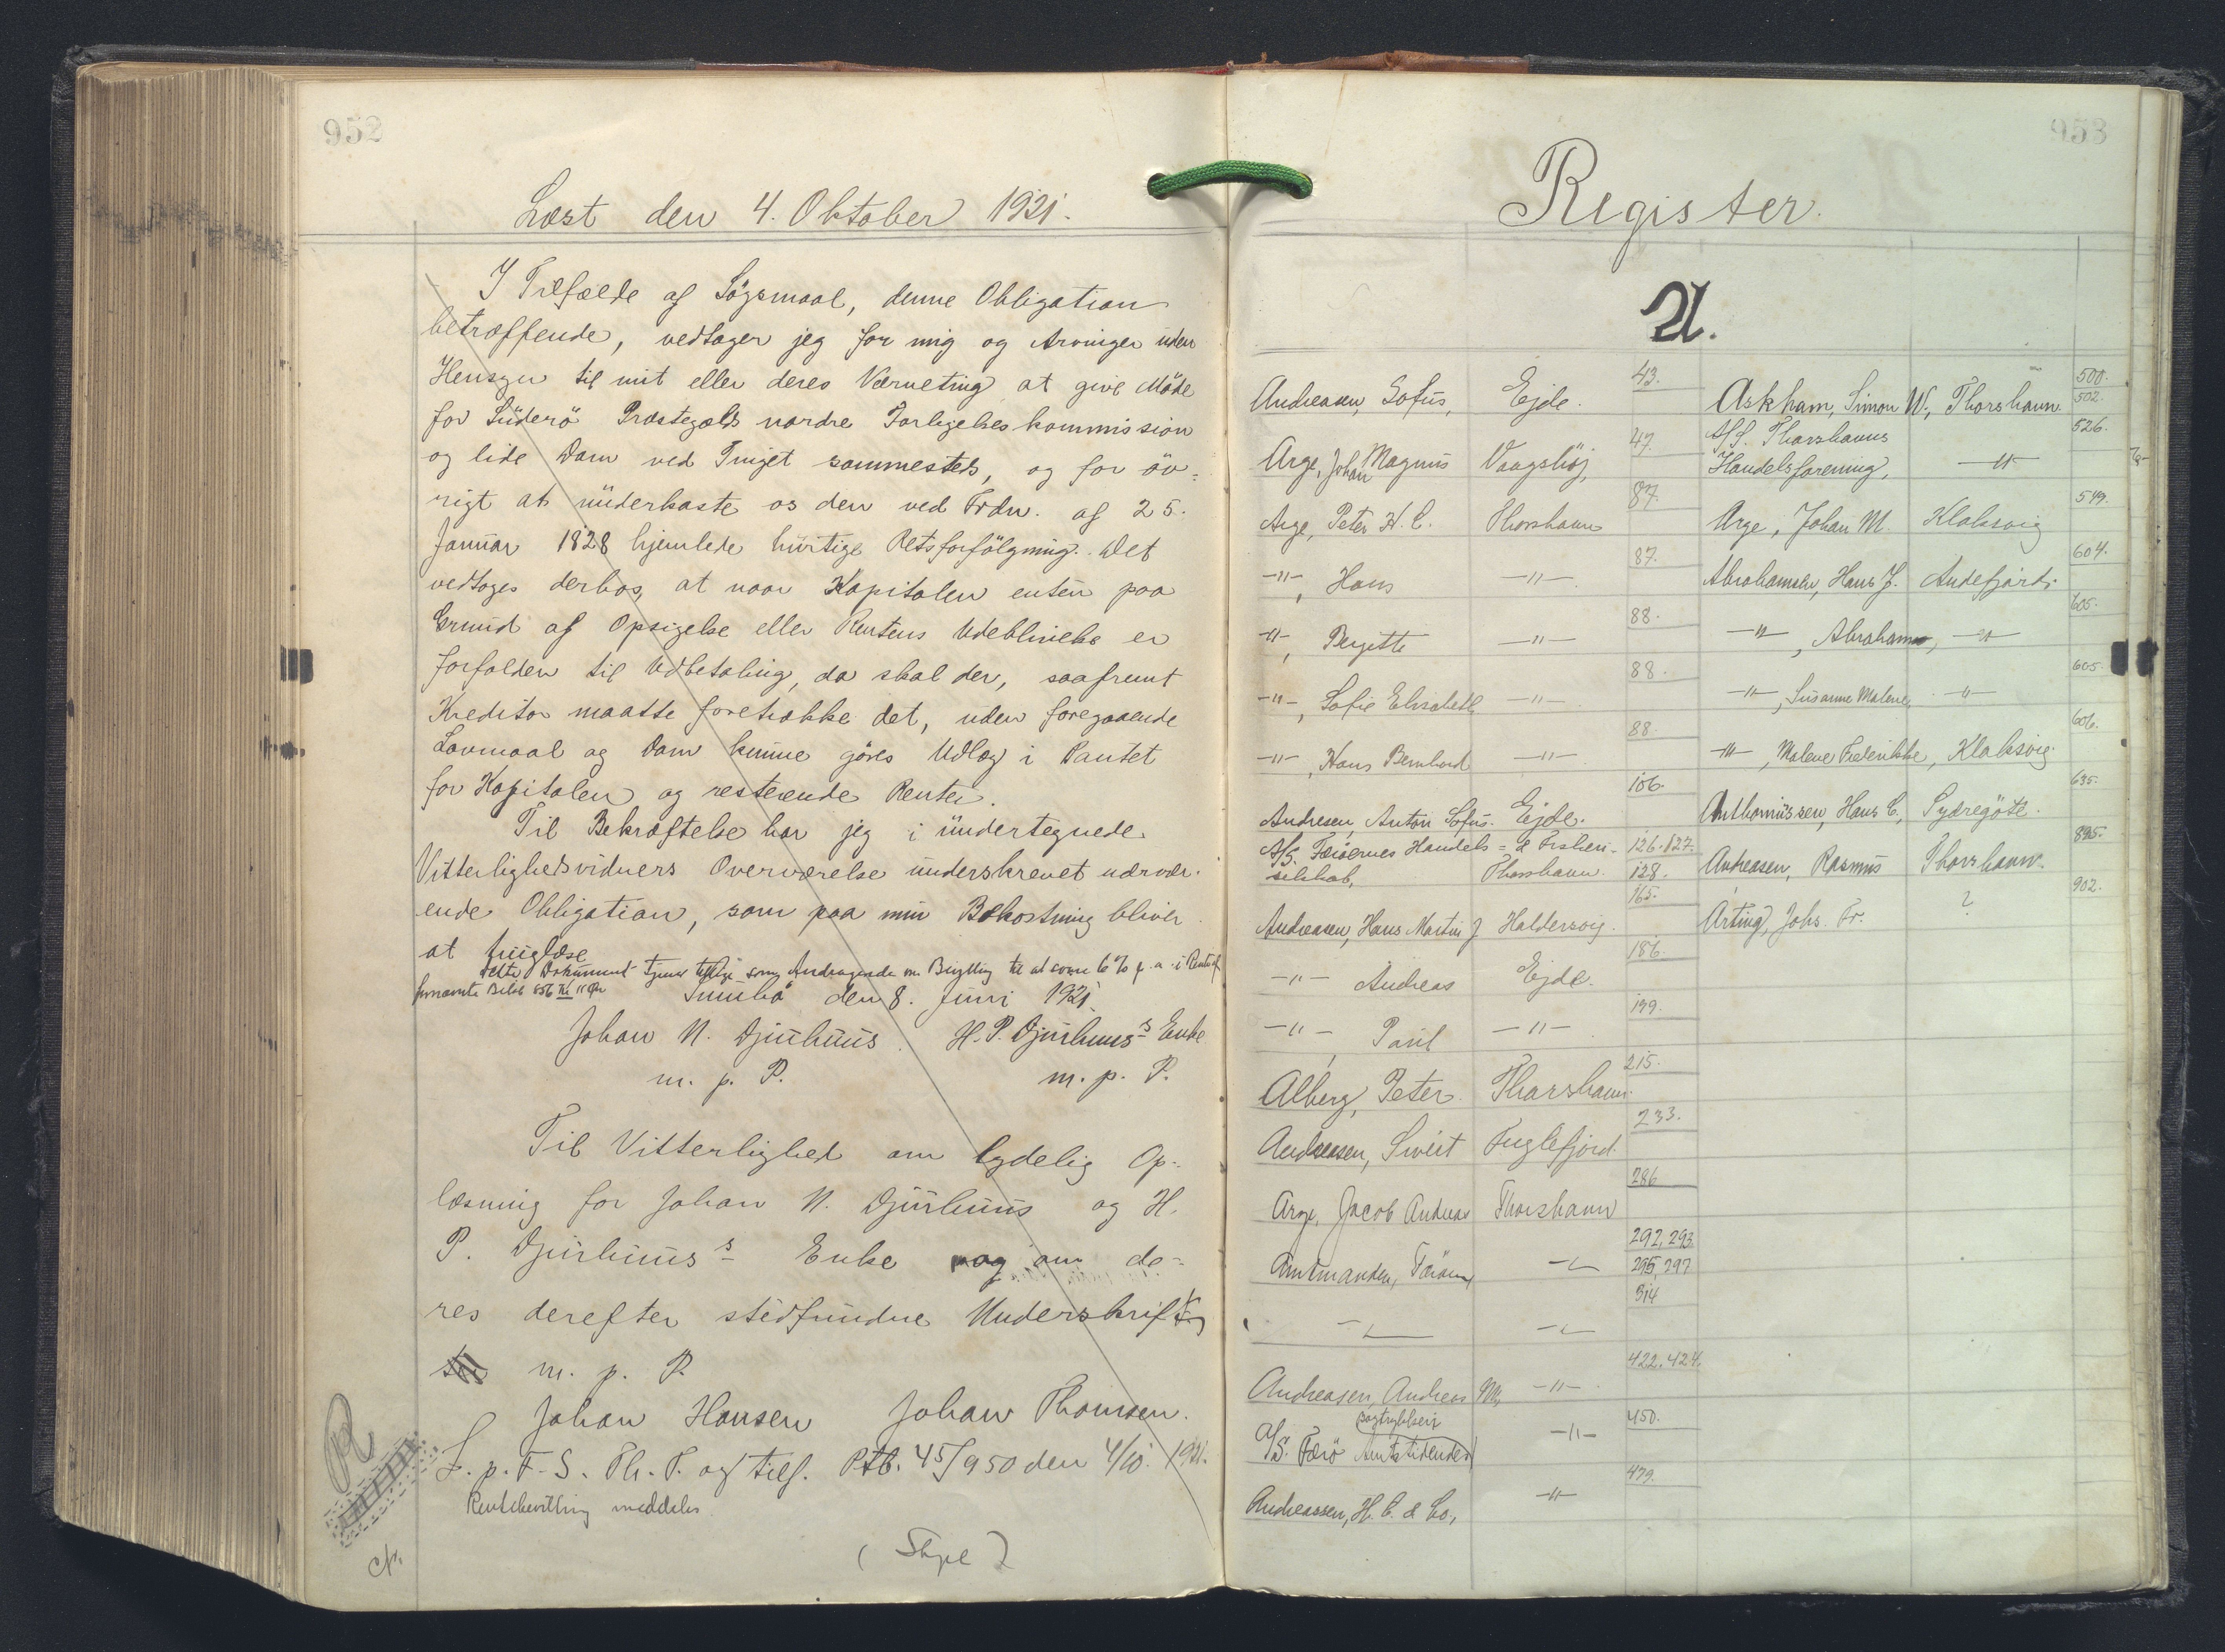 952
Læst den 4. Oktober 1921.
I Tilfælde af Søgsmaal, denne Obligation
betræffende, vedtager jeg for mig og Arvinger uden
Hensyn til mit eller deres Værneting at give Möde
for Süderö Præstegælds nordre Forligelseskommission
og lide Dom ved Tinget sammesteds, og for öv-
rigt at ünderkaste os den ved Frdn. af 25.
Januar 1828 hjemlede hürtige Retsforfölgning. Det
vedtages derhos, at naar Kapitalen enten paa
Grund af Opsigelse eller Rentens Udeblivelse er
forfalden til Udbetaling, da skal der, saafremt
Kreditor maatte foretrække det, uden foregaaende
Lovmaal og Dom kunne göres Udlæg i Pantet
for Kapitalen og resterende Renter.
Til Bekræftelse har jeg i ündertegnede
Vitterlighedsvidners Overværelse ünderskrevet nærvær-
ende Obligation, som paa min Bekostning bliver
at tinglæse
Dette Dokument tjener tillige som Andragende om Bevilling til at svare 6% p. a. i Rente af
fornævnte Beløb 856 Kr 11 Øre
Sumbö den 8. Juni 1921.
Johan N. Djurhuus. H. P. Djurhuus's Enke
m. p. P. m. p. P.
Til Vitterlighed om lydelig Op-
læsning for Johan N. Djürhuus og H.
P. Djürhuus's Enke og om de-
res derefter stedfundne Underskrift
m. p. P.
Johan Hansen Johan Thomsen.
L. p. F. S. Th. T. og tilf. Ptb. 45/950 den 4/10. 1921.
Rentebevilling meddeles
953
Register.
A.
Andreasen, Sofus, Ejde. 43.
Arge, Johan Magnus Vaagshöj, 47.
Arge, Peter H. C. Thorshavn 87.
-"-, Hans -"- 87.
-"-, Bergitte -"- 88.
-"-, Sofie Elisabeth -"- 88.
-"-, Hans Bernhard -"- 88.
Andresen, Anton Sofus. Ejde. 106.
A/S. Færöernes Handels- & Fiskeri- 126.127.
selskab, Thorshavn. 128.
Andreasen, Hans Martin J. Haldersvig. 165.
-"- Andreas Ejde. 186.
-"-, Paul -"- 199.
Alberg, Peter. Thorshavn. 215.
Andreasen, Sivert Fuglefjord. 233.
Arge, Jacob Andreas Thorshavn 286
Amtmanden, Færöerne -"- 292, 293
295, 297
-"- -"- 314
Andreasen, Andreas M., -"- 422. 424.
bogtrykkeri
A/S. Færö Amtstidendes -"- 450.
Andreassen, H. C. & Co, -"- 479.
Askham, Simon W., Thorshavn. 500.
502.
A/S. Thorshavns 526.
Handelsforening, -"-
Arge, Johan M. Klaksvig 549.
Abrahamsen, Hans J. Andefjord. 604.
-"-, Abraham, -"- 605.
-"-, Susanne Malene, -"- 605.
-"-, Malene Frederikke, Klaksvig. 606.
Anthoniussen, Hans C., Sydregöte. 635.
Andreasen, Rasmus Thorshavn. 895.
Arting, Johs. Fr. ? 902.